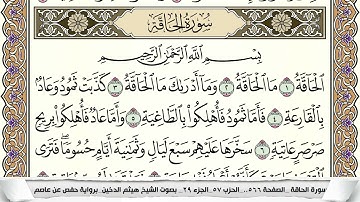 سورة الحاقة
بِسْمِ اللَّهِ الرَّحْمَٰنِ الرَّحِيمِ
الْحَاقَّةُ ١ مَا الْحَاقَّةُ ٢ وَمَا أَدْرَاكَ مَا الْحَاقَّةُ ٣ كَذَّبَتْ ثَمُودُ وَعَادٌ
بِالْقَارِعَةِ ٤ فَأَمَّا ثَمُودُ فَأُهْلِكُوا بِالطَّاغِيَةِ ٥ وَأَمَّا عَادٌ فَأُهْلِكُوا بِرِيحٍ
صَرْصَرٍ عَاتِيَةٍ ٦ سَخَّرَهَا عَلَيْهِمْ سَبْعَ لَيَالٍ وَثَمَانِيَةَ أَيَّامٍ حُسُومًا فَتَرَى
سورة الحاقة .. الصفحة ٥٦٦ .. الحزب ٥٧ .. الجزء ٢٩ .. بصوت الشيخ هيثم الدخين .. برواية حفص عن عاصم